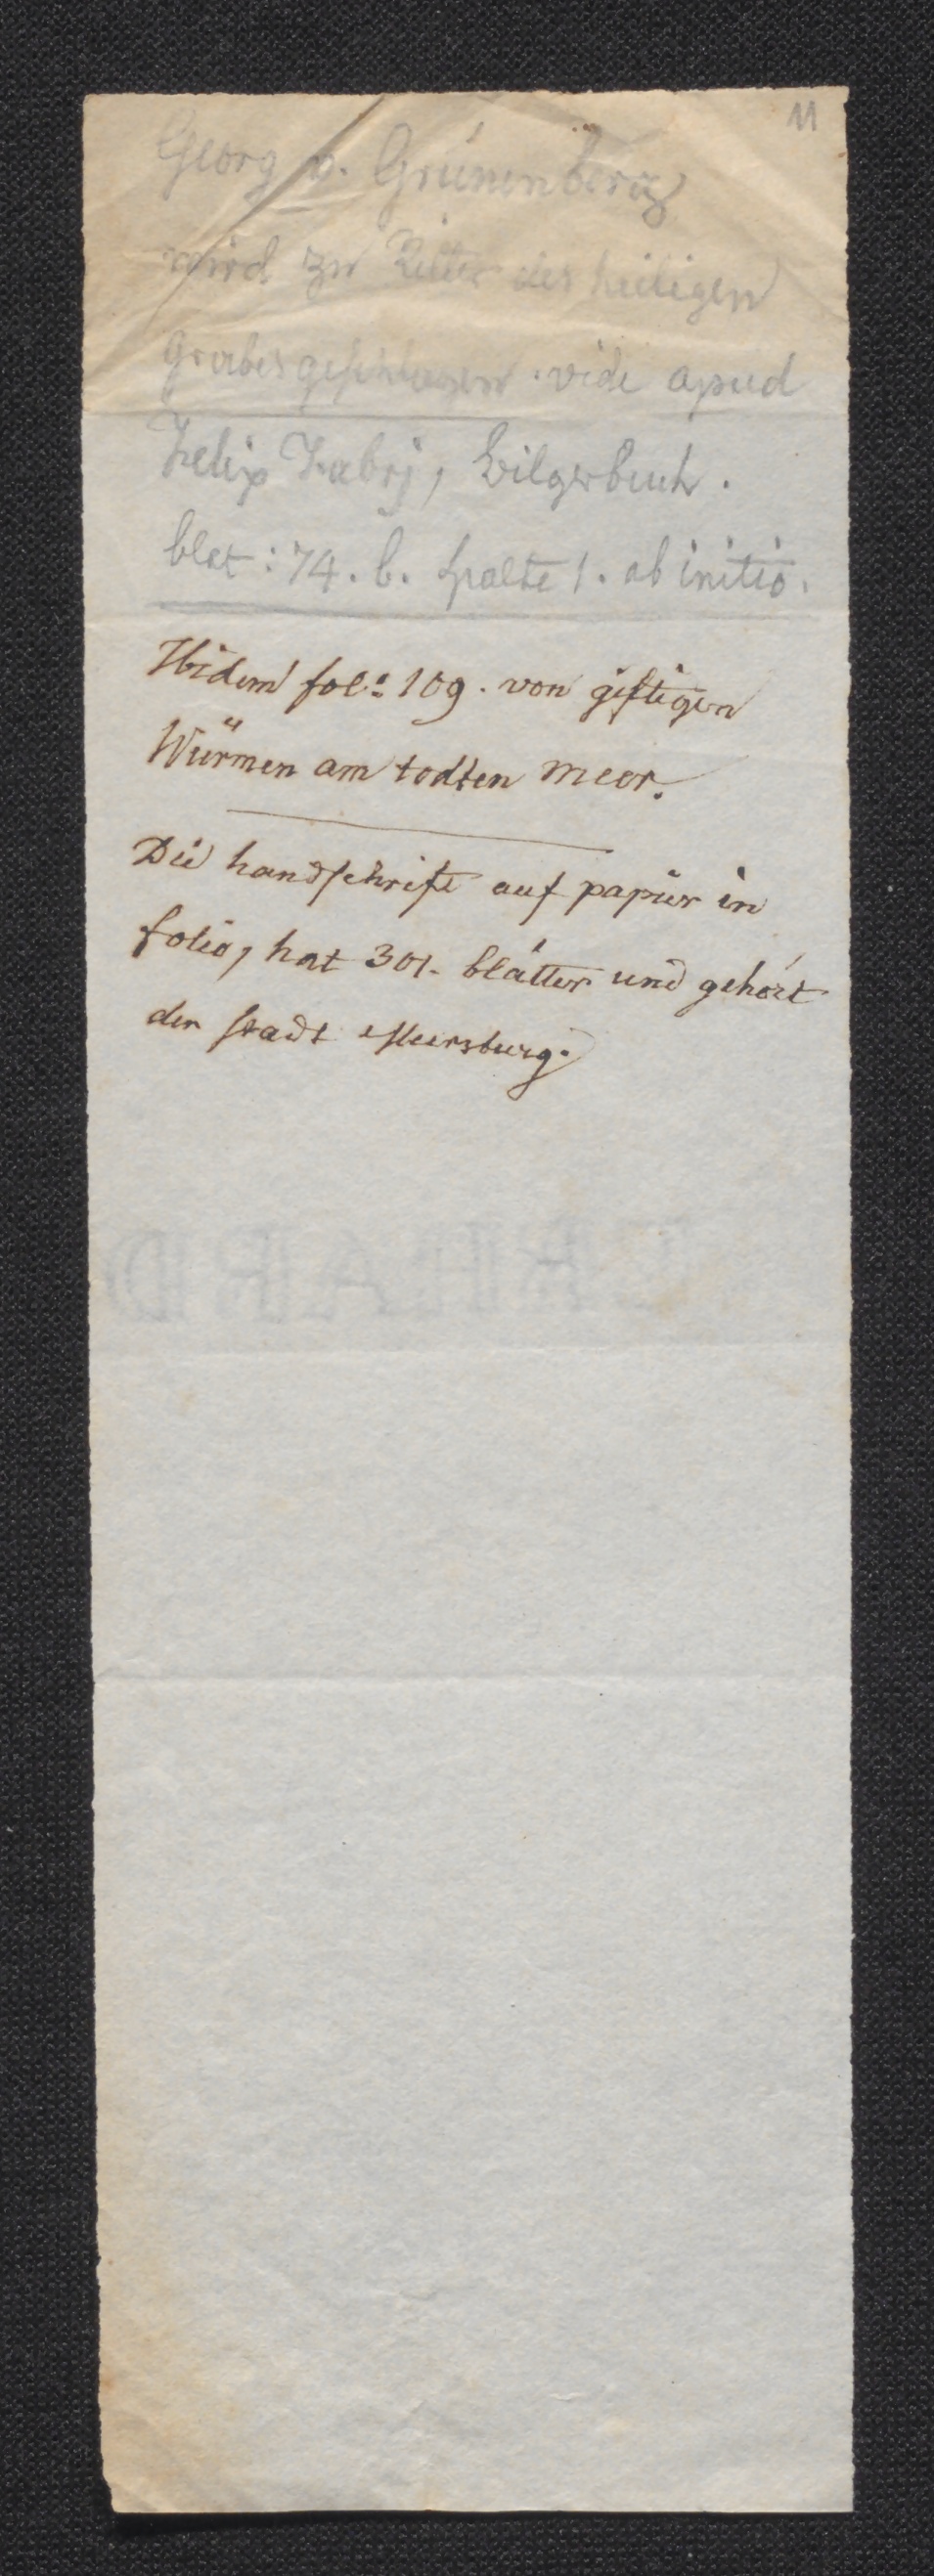 11
Georg v. Grünenberg
wird zu Ritter des heiligen
grabes geschlagen. vide apud
Felix Fabrj, bilgerbuch.
blat: 74. b. spalte 1. ab initio.
Ibidem fol: 109. von giftigen
Würmen am todten meer.
Die handschrift auf papier in
folio, hat 301. blätter und gehört
der stadt Meersburg.